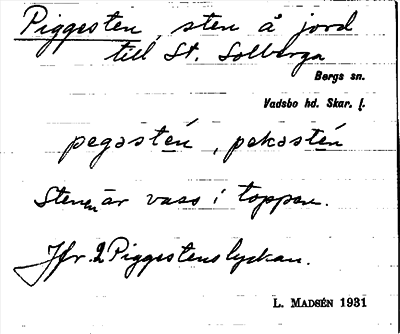 Piggesten, sten å jord
till St. Solberga
Bergs sn.
Vadsbo hd. Skar. l.
pegastén, pekastén
Stenen är vass i toppen.
Jfr. 2 Piggestenslyckan.
L. MADSÉN 1931